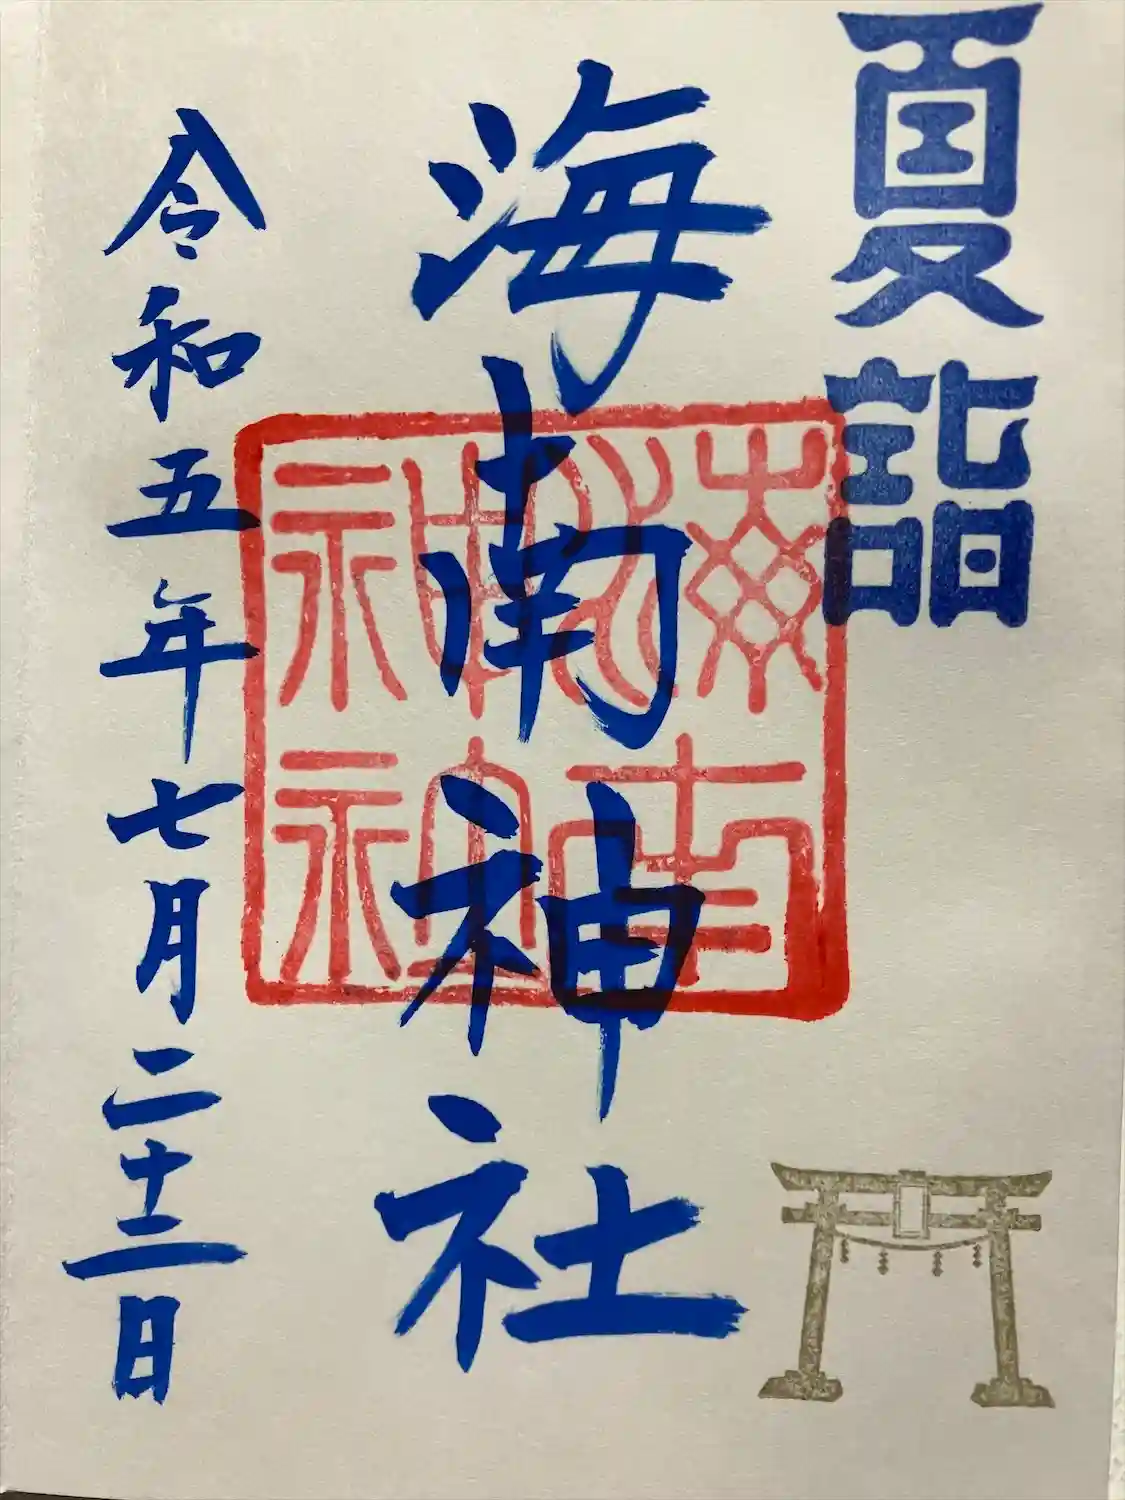 夏詣
海南神社
海南
神社
令和五年七月二十二日